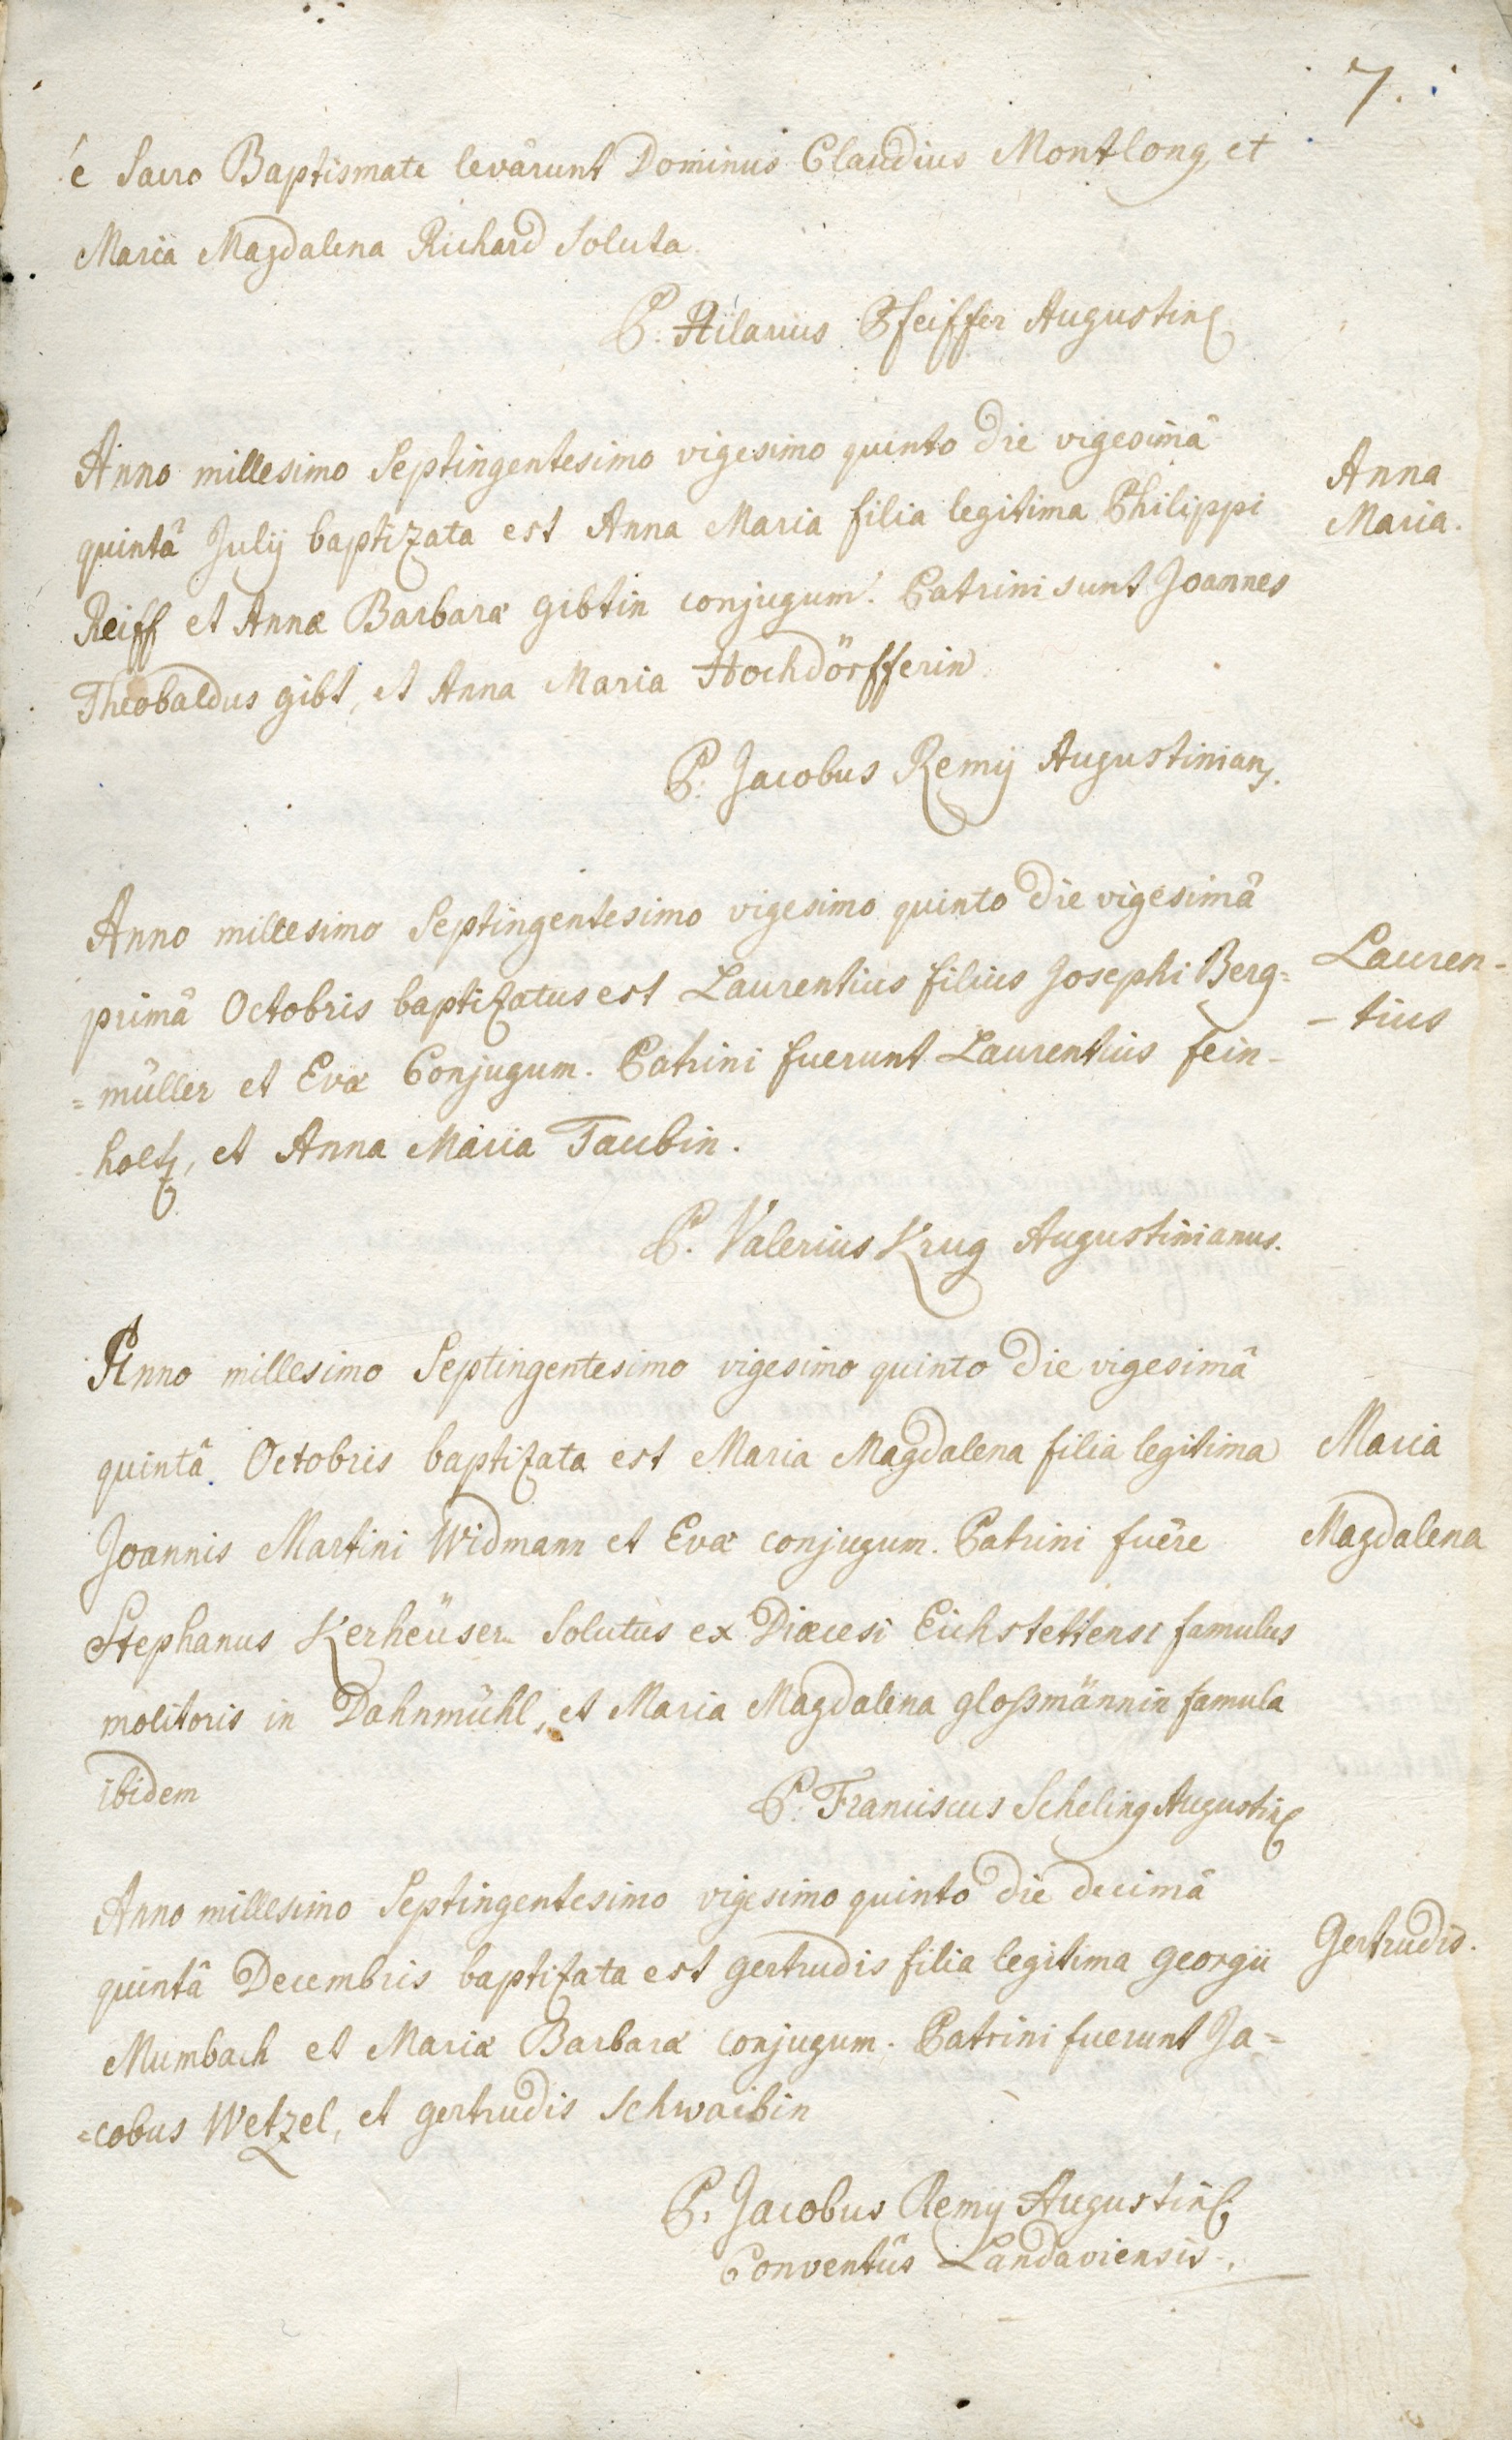 7.
é Sacro Baptismate levârunt Dominus Claudius Montlong, et
Maria Magdalena Richard Soluta
P. Hilarius Pfeiffer Augustin
Anno millesimo Septingentesimo vigesimo quinto die vigesimâ
quintâ Julij baptizata est Anna Maria filia legitima Philippi
Reiff et Annæ Barbaræ gibtin conjugum. Patrini sunt Joannes
Theobaldus gibt, et Anna Maria Hochdörfferin
Anna
Maria.
P. Jacobus Remij Augustinian9.
Anno millesimo Septingentesimo vigesimo quinto die vigesimâ
primâ Octobris baptizatus est Laurentius filius Josephi Berg=
=müller et Evæ Conjugum. Patrini fuerunt Laurentius fein-
holtz, et Anna Maria Taubin.
Lauren-
-tius
P. Valerius Krug Augustinianus.
Anno millesimo Septingentesimo vigesimo quinto die vigesimâ
quintâ Octobris baptizata est Maria Magdalena filia legitima
Joannis Martini Widmann et Evæ conjugum. Patrini fuêre
Stephanus Kerheüser Solutus ex Diæcesi Eichstettensi famulus
molitoris in Dahnmühl, et Maria Magdalena gloßmännin famula
ibidem
Maria
Magdalena
P. Franciscus Scheling Augustin
Anno millesimo Septingentesimo vigesimo quinto die decimâ
quintâ Decembris baptizata est gertrudis filia legitima georgii
Mumbach et Mariæ Barbaræ conjugum. Patrini fuerunt Ja=
=cobus Wetzel, et gertrudis Schwaibin
Gertrudis.
P. Jacobus Remij Augustin
Conventûs Landaviensis.